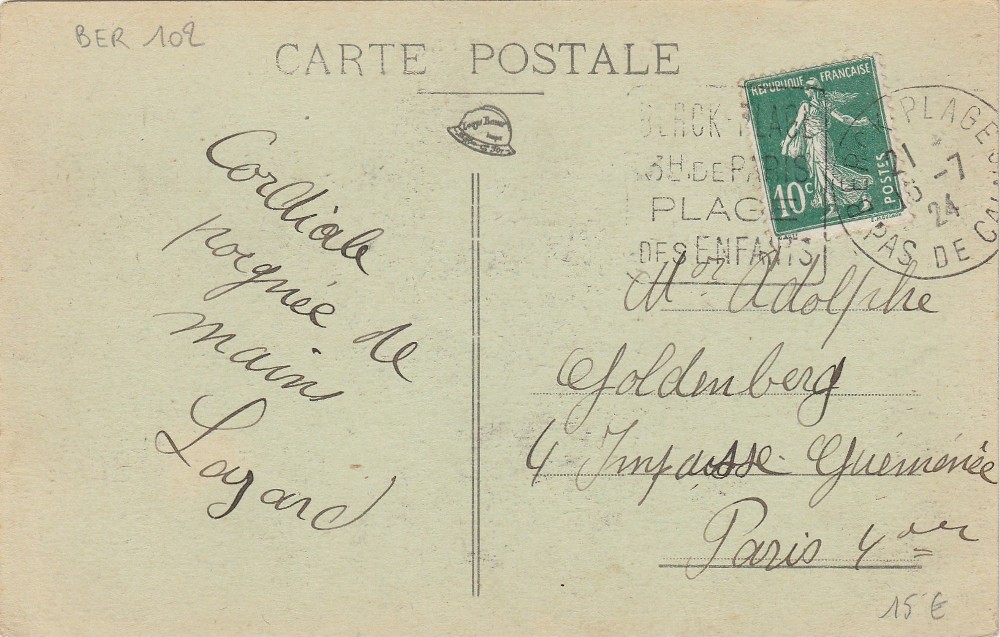 BER 102
CARTE POSTALE
BERCK-PLAGE
3H. DE PARIS
PLAGE
DES ENFANTS
REPUBLIQUE FRANÇAISE
10c
POSTES
BERCK PLAGE
21 -7
24
PAS DE CALAIS
Cordiale
poignée de
mains
Lazard
Mor Adolphe
Goldenberg
4 Impasse Guéménée
Paris 4
15 €